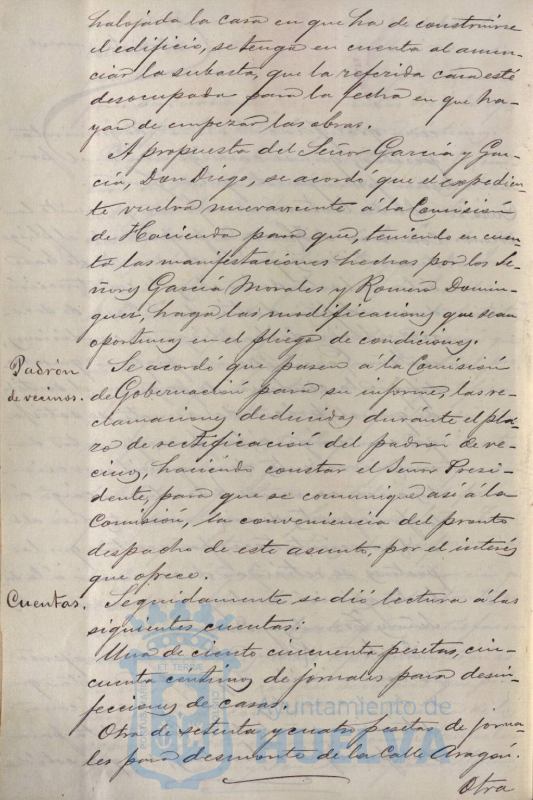 halojada la casa en que ha de construirse
el edificio, se tenga en cuenta al anun-
ciar la subasta, que la referida casa esté
desocupada para la fecha en que ha-
yan de empezar las obras.
A propuesta del Señor García y Gar-
cía, Don Diego, se acordó que el expedien-
te vuelva nuevamente á la Comisión
de Hacienda para que, teniendo en cuen-
ta las manifestaciones hechas por los Se-
ñores García Morales y Romero Domin-
guez, haga las modificaciones que sean
oportunas en el pliego de condiciones.
Padrón
de vecinos.
Se acordó que pasen á la Comisión
de Gobernación para su informe, las re-
clamaciones deducidas durante el pla-
zo de rectificación del padrón de ve-
cinos, haciendo constar el Señor Presi-
dente, para que se comunique así á la
Comisión, la conveniencia del pronto
despacho de este asunto, por el interés
que ofrece.
Cuentas.
Seguidamente se dió lectura á las
siguientes cuentas:
Una de ciento cincuenta pesetas, cin-
cuenta céntimos de jornales para desin-
fecciones de casas.
Otra de setenta y cuatro pesetas de jorna-
les para desmonte de la Calle Aragón.
Otra
Ayuntamiento de
HUELVA